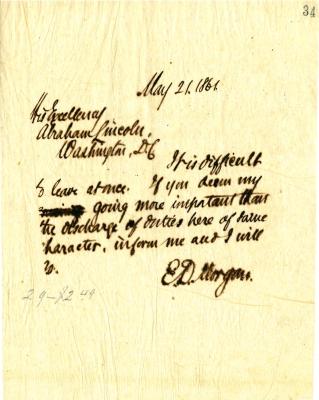 34
May 21. 1861.
His Excellency
Abraham Lincoln,
Washington, D.C
It is difficult
to leave at once. If you deem my
going more important than
the discharge of duties here of same
character, inform me and I will
go.
E. D. Morgan.
29-X2 49